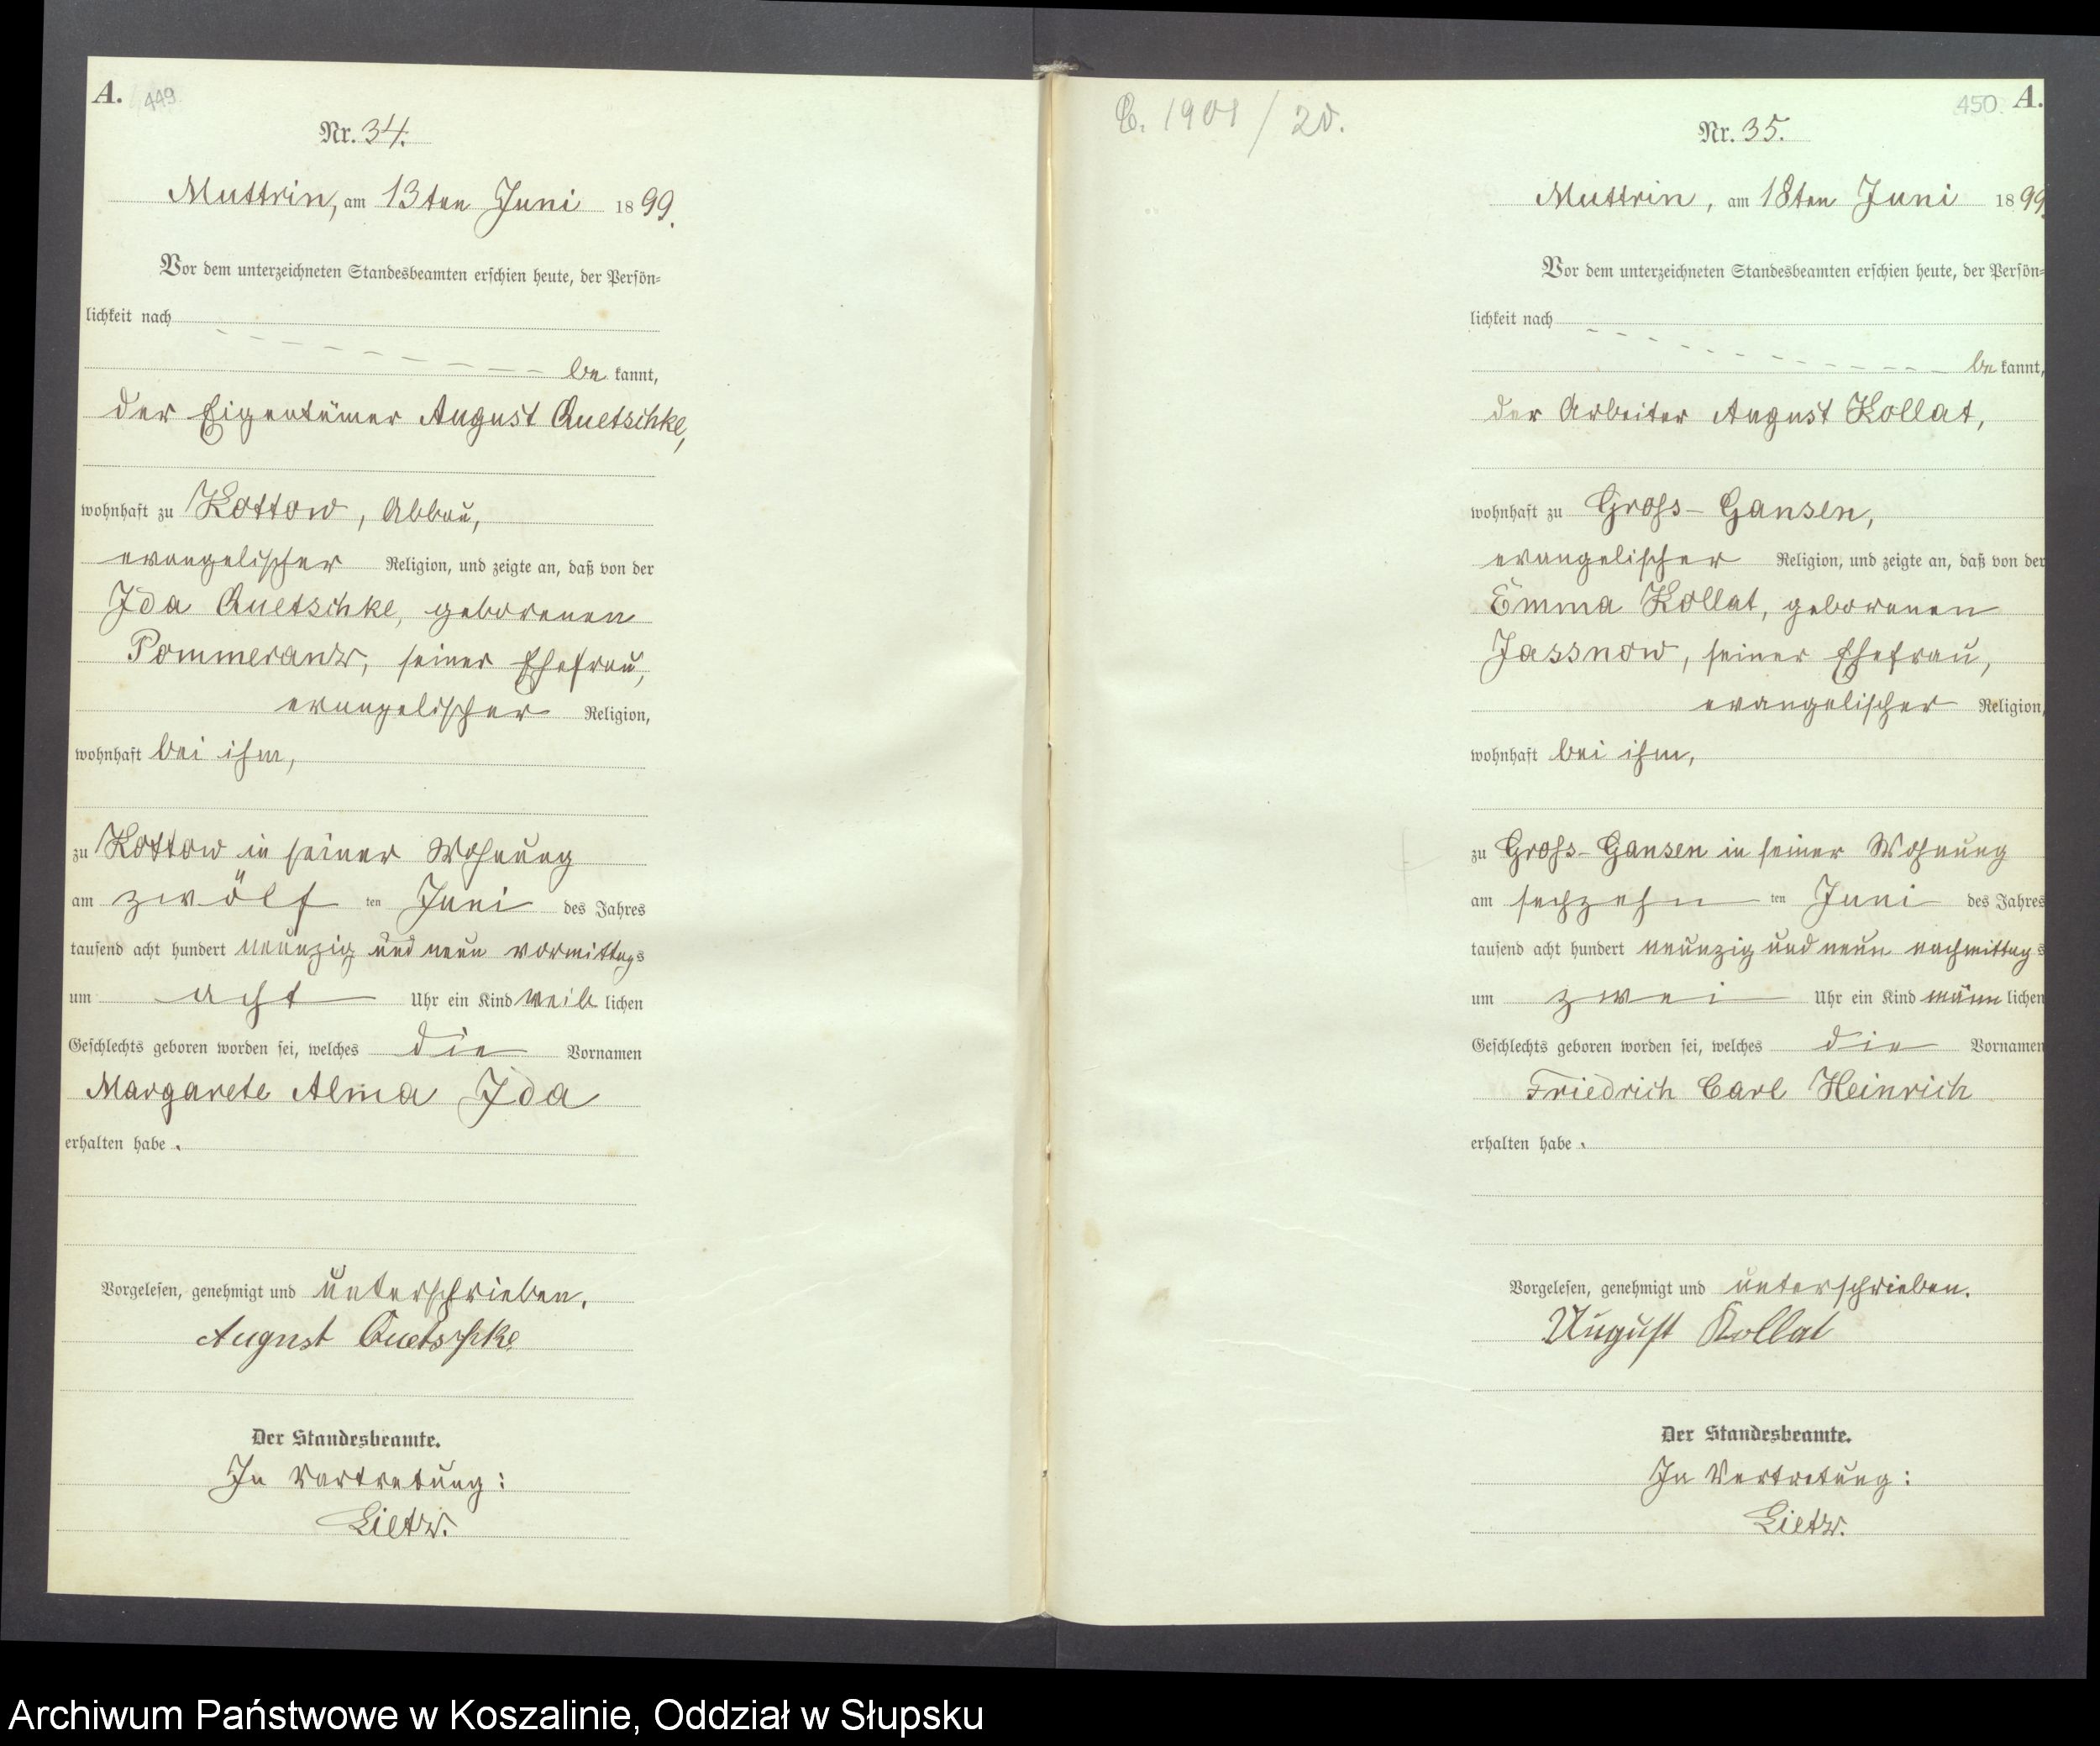 A. 449
Nr. 34.
Muttrin, am 13ten Juni 1899.
Vor dem unterzeichneten Standesbeamten erschien heute, der Persön=
lichkeit nach
be kannt,
der Eigentümer August Quetschke,
wohnhaft zu Kottow, Abbau,
evangelischer Religion, und zeigte an, daß von der
Ida Quetschke, geborenen
Pommeranz, seiner Ehefrau,
evangelischer Religion,
wohnhaft bei ihm,
zu Kottow in seiner Wohnung
am zwölf ten Juni des Jahres
tausend acht hundert neunzig und neun vormittags
um acht Uhr ein Kind weib lichen
Geschlechts geboren worden sei, welches die Vornamen
Margarete Alma Ida
erhalten habe.
Vorgelesen, genehmigt und unterschrieben.
August Quetschke
Der Standesbeamte.
In Vertretung:
Lietz.
C. 1901 / 20.
450 A.
Nr. 35.
Muttrin, am 18ten Juni 1899.
Vor dem unterzeichneten Standesbeamten erschien heute, der Persön=
lichkeit nach
be kannt,
der Arbeiter August Kollat,
wohnhaft zu Gross-Gansen,
evangelischer Religion, und zeigte an, daß von der
Emma Kollat, geborenen
Jassnow, seiner Ehefrau,
evangelischer Religion,
wohnhaft bei ihm,
zu Gross-Gansen in seiner Wohnung
am sechzehn ten Juni des Jahres
tausend acht hundert neunzig und neun nachmittags
um zwei Uhr ein Kind männ lichen
Geschlechts geboren worden sei, welches die Vornamen
Friedrich Carl Heinrich
erhalten habe.
Vorgelesen, genehmigt und unterschrieben.
August Kollat
Der Standesbeamte.
In Vertretung:
Lietz.
Archiwum Państwowe w Koszalinie, Oddział w Słupsku